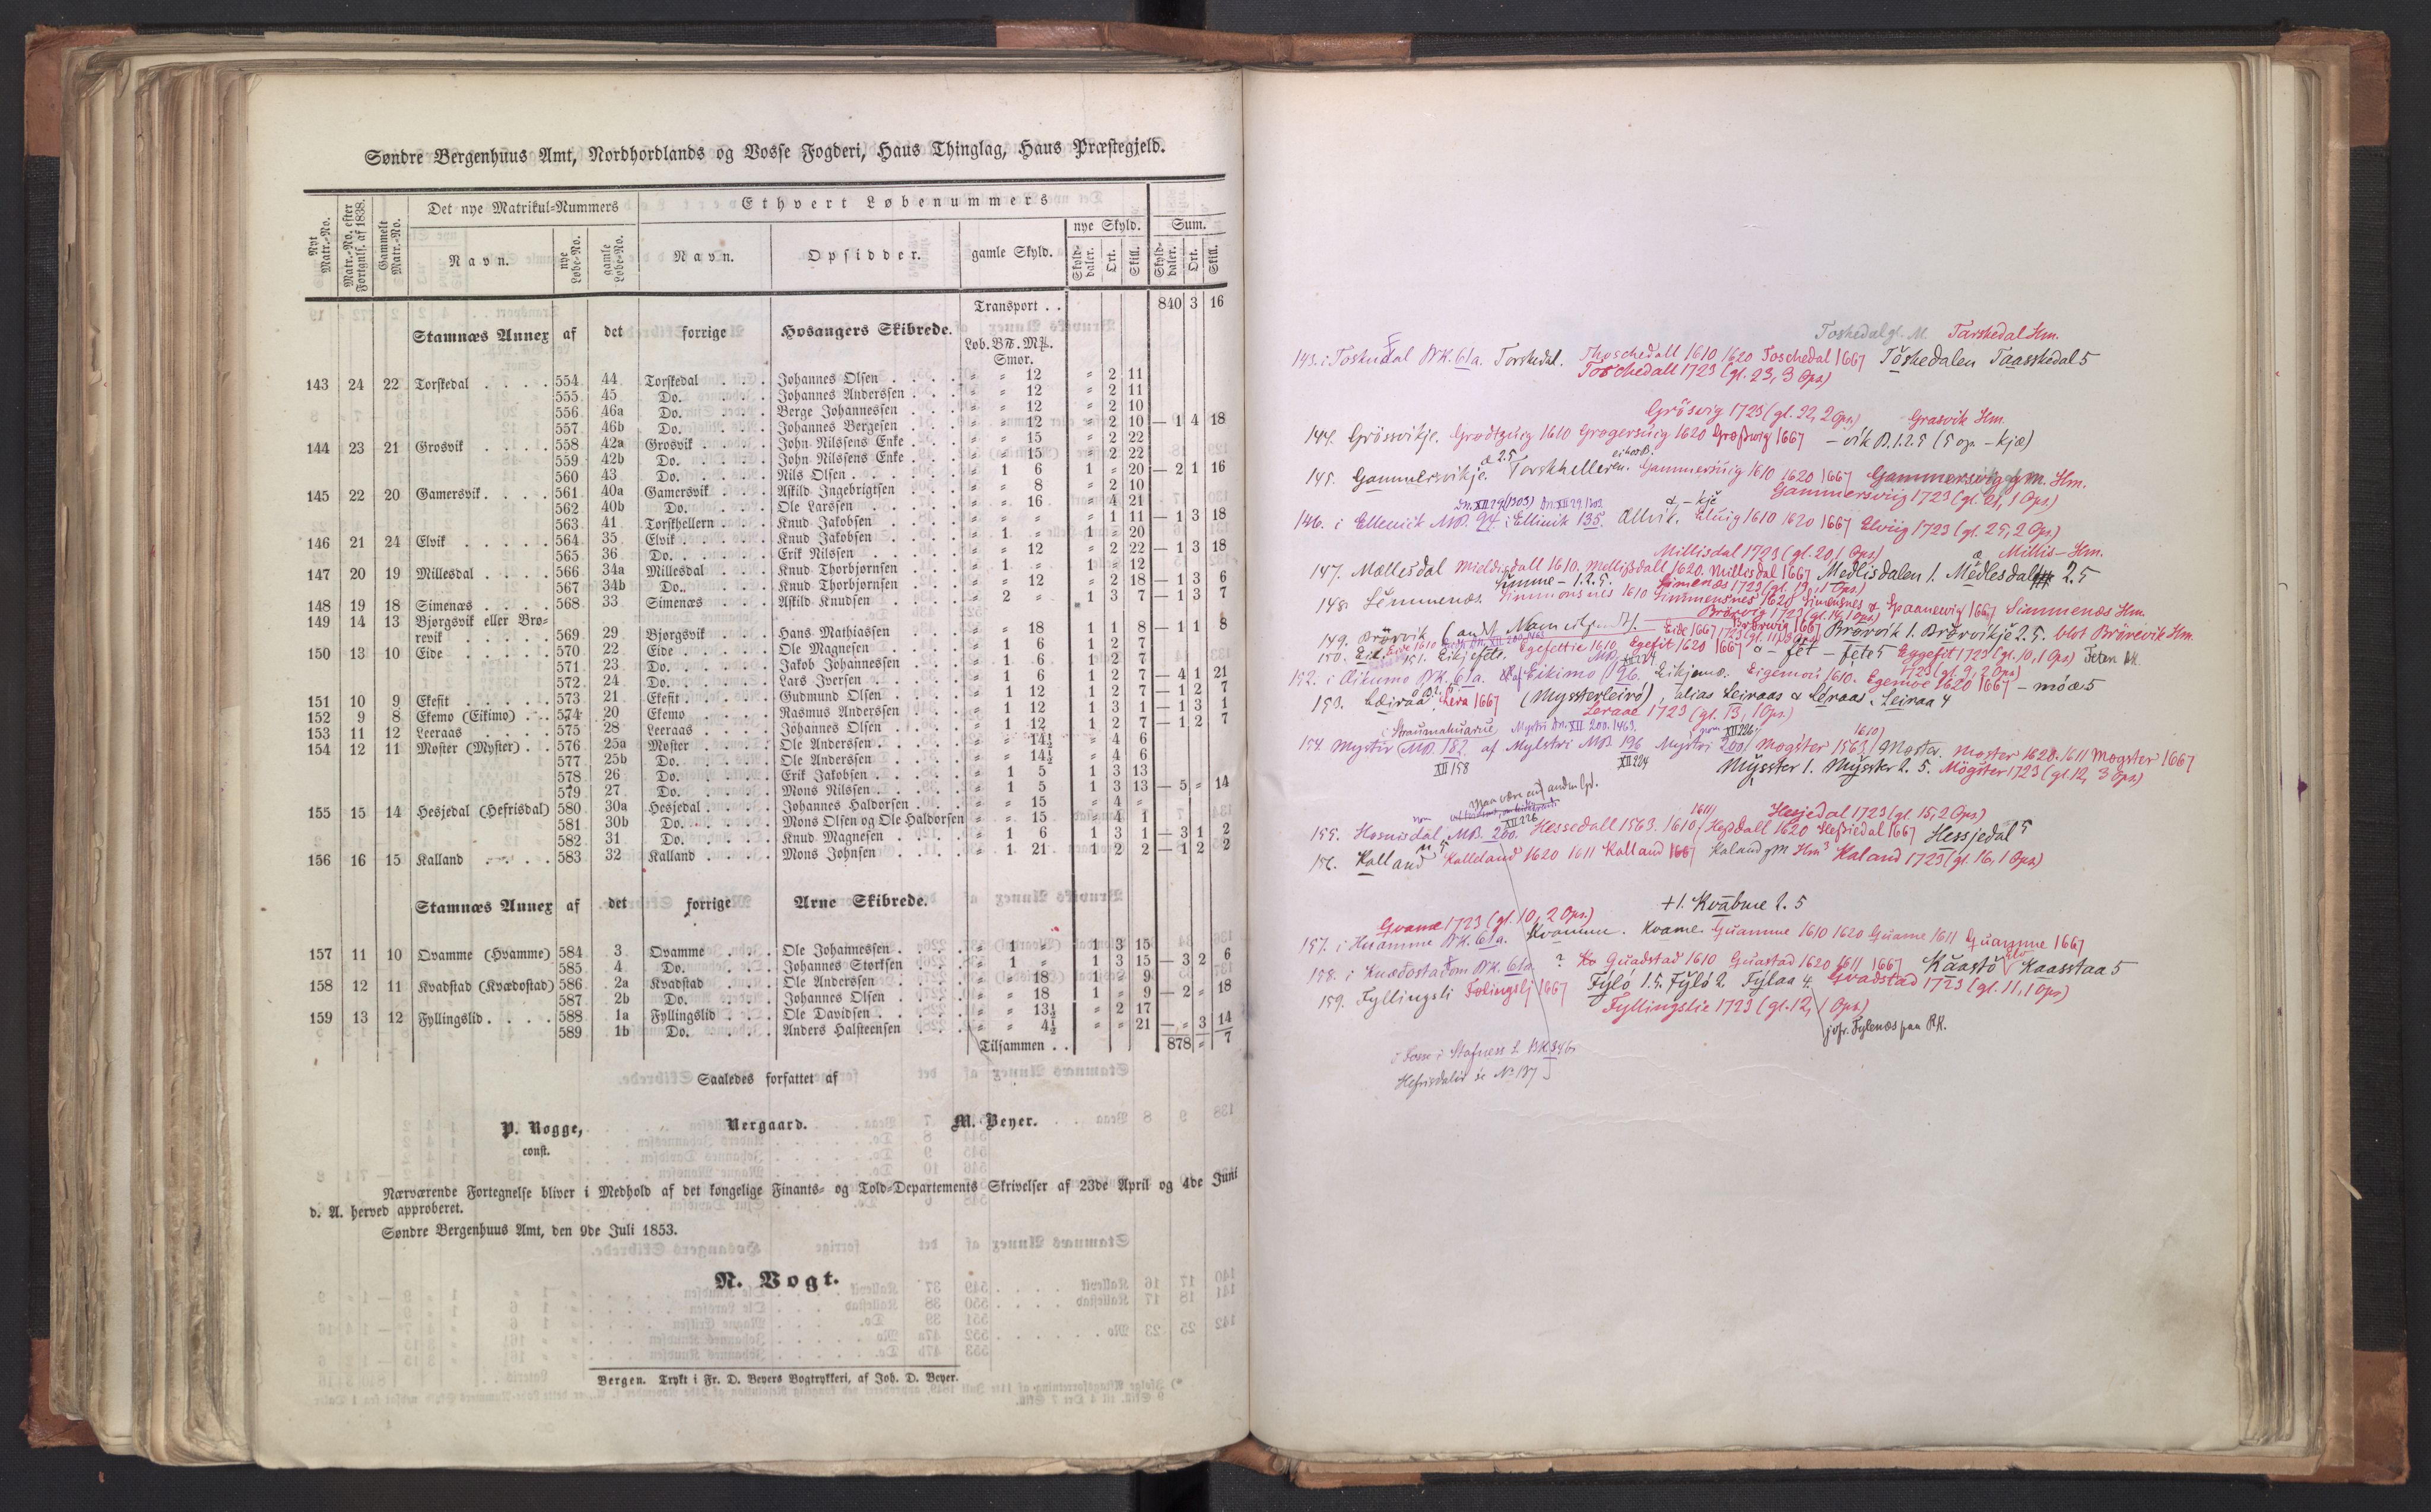 Søndre Bergenhuus Amt, Nordhordlands og Vosse Fogderi, Haus Thinglag, Haus Præstegjeld.
Nyt Matr.-No. Matr.-No. efter Fortgnlf. af 1838. Gammelt Matr.-No. Det nye Matrikul-Nummers Ethvert Løbenummers
Navn. nye Løbe-No. gamle Løbe-No. Navn. Opsidder. gamle Skyld. nye Skyld. Sum.
Skylddaler. Ort. Skill. Skylddaler. Ort. Skill.
Transport . . 840 3 16
Stamnæs Annex af det forrige Hosangers Skibrede.
Løb. B℔. M℔.
Smør.
143 24 22 Torskedal . . . . 554 44 Torskedal . . . Johannes Olsen . . . . = = 12 = 2 11
555 45 Do. . . . Johannes Anderssen . . . = = 12 = 2 11
556 46a Do. . . . Berge Johannessen . . . = = 12 = 2 10
557 46b Do. . . . Johannes Bergesen . . . = = 12 = 2 10 — 1 4 18
144 23 21 Grosvik . . . . 558 42a Grosvik . . . John Nilssens Enke . . . = = 15 = 2 22
559 42b Do. . . . John Nilssens Enke . . . = = 15 = 2 22
560 43 Do. . . . Nils Olsen . . . . = 1 6 1 = 20 — 2 1 16
145 22 20 Gamersvik . . . . 561 40a Gamersvik . . . Askild Ingebrigtsen . . . = = 8 = 2 10
562 40b Do. . . . Ole Larssen . . . . = = 16 = 4 21
563 41 Torskhellern . . . Knud Jakobsen . . . = = = = 1 11 — 1 3 18
146 21 24 Elvik . . . . 564 35 Elvik . . . Knud Jakobsen . . . = 1 = 1 = 20
565 36 Do. . . . Erik Nilssen . . . = = 12 = 2 22 — 1 3 18
147 20 19 Millesdal . . . . 566 34a Millesdal . . . Knud Thorbjørnsen . . . = 1 = 1 = 12
567 34b Do. . . . Knud Thorbjørnsen . . . = = 12 = 2 18 — 1 3 6
148 19 18 Simenæs . . . . 568 33 Simenæs . . . Askild Knudsen . . . = 2 = 1 3 7 — 1 3 7
149 14 13 Bjørgsvik eller Brørevik . . . . 569 29 Bjørgsvik . . . Hans Mathiassen . . . = = 18 1 1 8 — 1 1 8
150 13 10 Eide . . . . 570 22 Eide . . . Ole Magnesen . . . = 1 6 1 2 7
571 23 Do. . . . Jakob Johannessen . . . = 1 6 1 2 7
572 24 Do. . . . Lars Iversen . . . = 1 6 1 2 7 — 4 1 21
151 10 9 Ekefit . . . . 573 21 Ekefit . . . Gudmund Olsen . . . = 1 12 1 2 7 — 1 2 7
152 9 8 Ekemo (Eikimo) . . 574 20 Ekemo . . . Rasmus Anderssen . . . = 1 12 1 3 1 — 1 3 1
153 11 12 Leeraas . . . . 575 28 Leeraas . . . Johannes Olsen . . . = 1 12 1 2 7 — 1 2 7
154 12 11 Moster (Myster) . . 576 25a Moster . . . Ole Anderssen . . . = = 14½ = 4 6
577 25b Do. . . . Ole Anderssen . . . = = 14½ = 4 6
578 26 Do. . . . Erik Jakobsen . . . = 1 5 1 3 13
579 27 Do. . . . Mons Nilssen . . . = 1 5 1 3 13 — 5 = 14
155 15 14 Hesjedal (Hefrisdal) 580 30a Hesjedal . . . Johannes Haldorsen . . . = = 15 = 4 =
581 30b Do. . . . Mons Olsen og Ole Haldorsen = = 15 = 4 1
582 31 Do. . . . Knud Magnesen . . . = 1 6 1 3 1 — 3 1 2
156 16 15 Kalland . . . . 583 32 Kalland . . . Mons Johnsen . . . = 1 21 1 2 2 — 1 2 2
Stamnæs Annex af det forrige Arne Skibrede.
157 11 10 Qvamme (Hvamme) 584 3 Qvamme . . . Ole Johannessen . . . = 1 = 1 3 15
585 4 Do. . . . Johannes Størksen . . . = 1 = 1 3 15 — 3 2 6
158 12 11 Kvadstad (Kvædostad) 586 2a Kvadstad . . . Ole Anderssen . . . = = 18 1 = 9
587 2b Do. . . . Johannes Olsen . . . = = 18 1 = 9 — 2 = 18
159 13 12 Fyllingslid . . . . 588 1a Fyllingslid . . . Ole Davidsen . . . = = 13½ = 2 17
589 1b Do. . . . Anders Halsteensen . . . = = 4½ = = 21 — = 3 14
Tilsammen . . 878 = 7
Saaledes forfattet af
P. Rogge, Nergaard. M. Beyer.
const.
Nærværende Fortegnelse bliver i Medhold af det kongelige Finants- og Told-Departements Skrivelser af 23de April og 4de Juni
d. A. herved approberet.
Søndre Bergenhuus Amt, den 9de Juli 1853.
N. Vogt.
Bergen. Trykt i Fr. D. Beyers Bogtrykkeri, af Joh. D. Beyer.
Toskedal gl. M. Tarskedal Hm.
143. i Toskudal BK. 61a. Torskedal. Thoschedall 1610 1620 Toschedal 1667 Töskedalen Taasskedal 5
Toschedall 1723 (gl. 23, 3 Ops.)
Grösvig 1723 (gl. 22, 2 Ops.) Grasvik Hm.
144. Grössvikje. Grodtzuig 1610 Grogersuig 1620 Großwig 1667 – vik B. 1.2.5 (5 ogs – kjæ)
145. Gammersvikje. Torskhelleren. Gammersuig 1610 1620 1667 Gammersvig gm. Hm.
Gammersvig 1723 (gl. 21, 1 Ops.)
Dn. XII 29 (1303)
146. i Elleuick MB. 94. i Ellinik 135. Ællvik. Eluig 1610 1620 1667 Elviig 1723 (gl. 25, 2 Ops.)
Millisdal 1723 (gl. 20, 1 Ops.) Millis– Hm.
147. Mællesdal Mieldisdall 1610. Mellißdall 1620. Millisdal 1667 Medlisdalen 1. Medlesdal 2.5
Simenæs 1723 (gl. 19, 1 Ops.)
148. Semmenæs. Simmonsnes 1610 Simmensnes 1620 Simensnes & Spaanewig 1667 Simmenæs Hm.
Brörvig 1723 (gl. 14, 1 Ops.)
149. Brörvik (andet Navn Brörwig 1667 Brørvik 1. Brørvikje 2.5. blot Brörevik Hm.
150. Eid. Eide 1610 Eide 1667 1723 (gl. 11, 8 Ops.)
151. Eikjefete. Egefettie 1610 Egefit 1620 1667 – fet – fete 5 Eggefit 1723 (gl. 10, 1 Ops.) Feten BK.
152. i Eikumo BK. 61a. Eikimo 196. Eikjemo. Eigemoe 1610. Egemoe 1620 1667 – móæ 5
1723 (gl. 9, 2 Ops.)
153. Læiraa. Lera 1667 (Myssterleirå), alias Leiraas & Leraas. Leiraa 4
Leraae 1723 (gl. 13, 1 Ops.)
i Straumahuarue, Mystri Dn. XII 200. 1463.
154. Mystir (MB. 182. af Mylstri MB 196 Mystri 200 Mogster 1563 Moster. Moster 1620. 1611 Mogster 1667
XII 158 XII 224 Mysster 1. Mysster 2. 5. Mögster 1723 (gl. 12, 3 Ops.)
Maa være en anden Gd.
Hesjedal 1723 (gl. 15, 2 Ops.)
155. Hosuisdal, MB. 200. Hessedall 1563. 1610, Heßdall 1620 Heßiedal 1667 Hessjedal 5
156. Kalland Kalleland 1620 1611 Kalland 1667 Kaland gm Hm Kaland 1723 (gl. 16, 1 Ops.)
+1. Kvåbme 2. 5
Qvame 1723 (gl. 10, 2 Ops.)
157. i Huamme BK. 61a. Kvamme. Kvame. Quamme 1610 1620 Quame 1611 Quamme 1667
158. i Kuædostadom BK. 61a ? Quadstad 1610 Quastad 1620 1611 1667 Kåastö Kaasstaa 5
Qvadstad 1723 (gl. 11, 1 Ops)
159. Fyllingsli Folingslj 1667 Fyló 1.5. Fyló 2 Fylaa 4
Fyllingslie 1723 (gl. 12, 1 Ops.)
jvfr. Fylenæs paa RK.
i Fosse i Stafness S. BK 346
Hefrisdalir se No 137